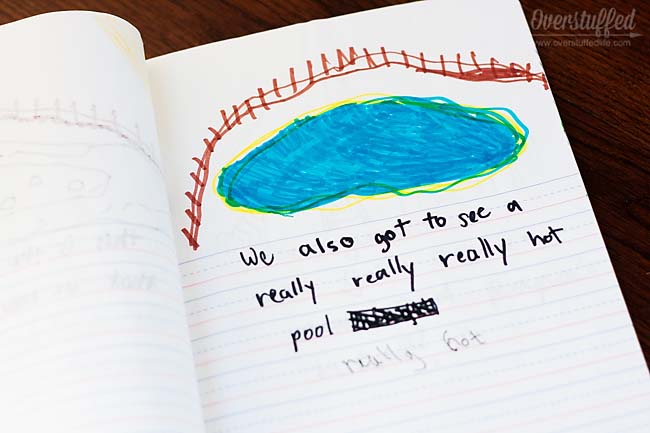 Overstuffed
www.overstuffedlife.com
We also got to see a
really really really hot
pool
really hot